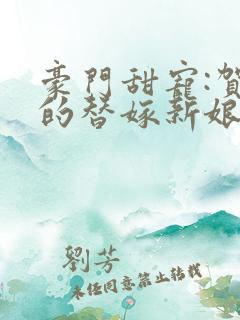 豪門甜寵:賀
的替嫁新娘
劉芳
未任同意禁止转载